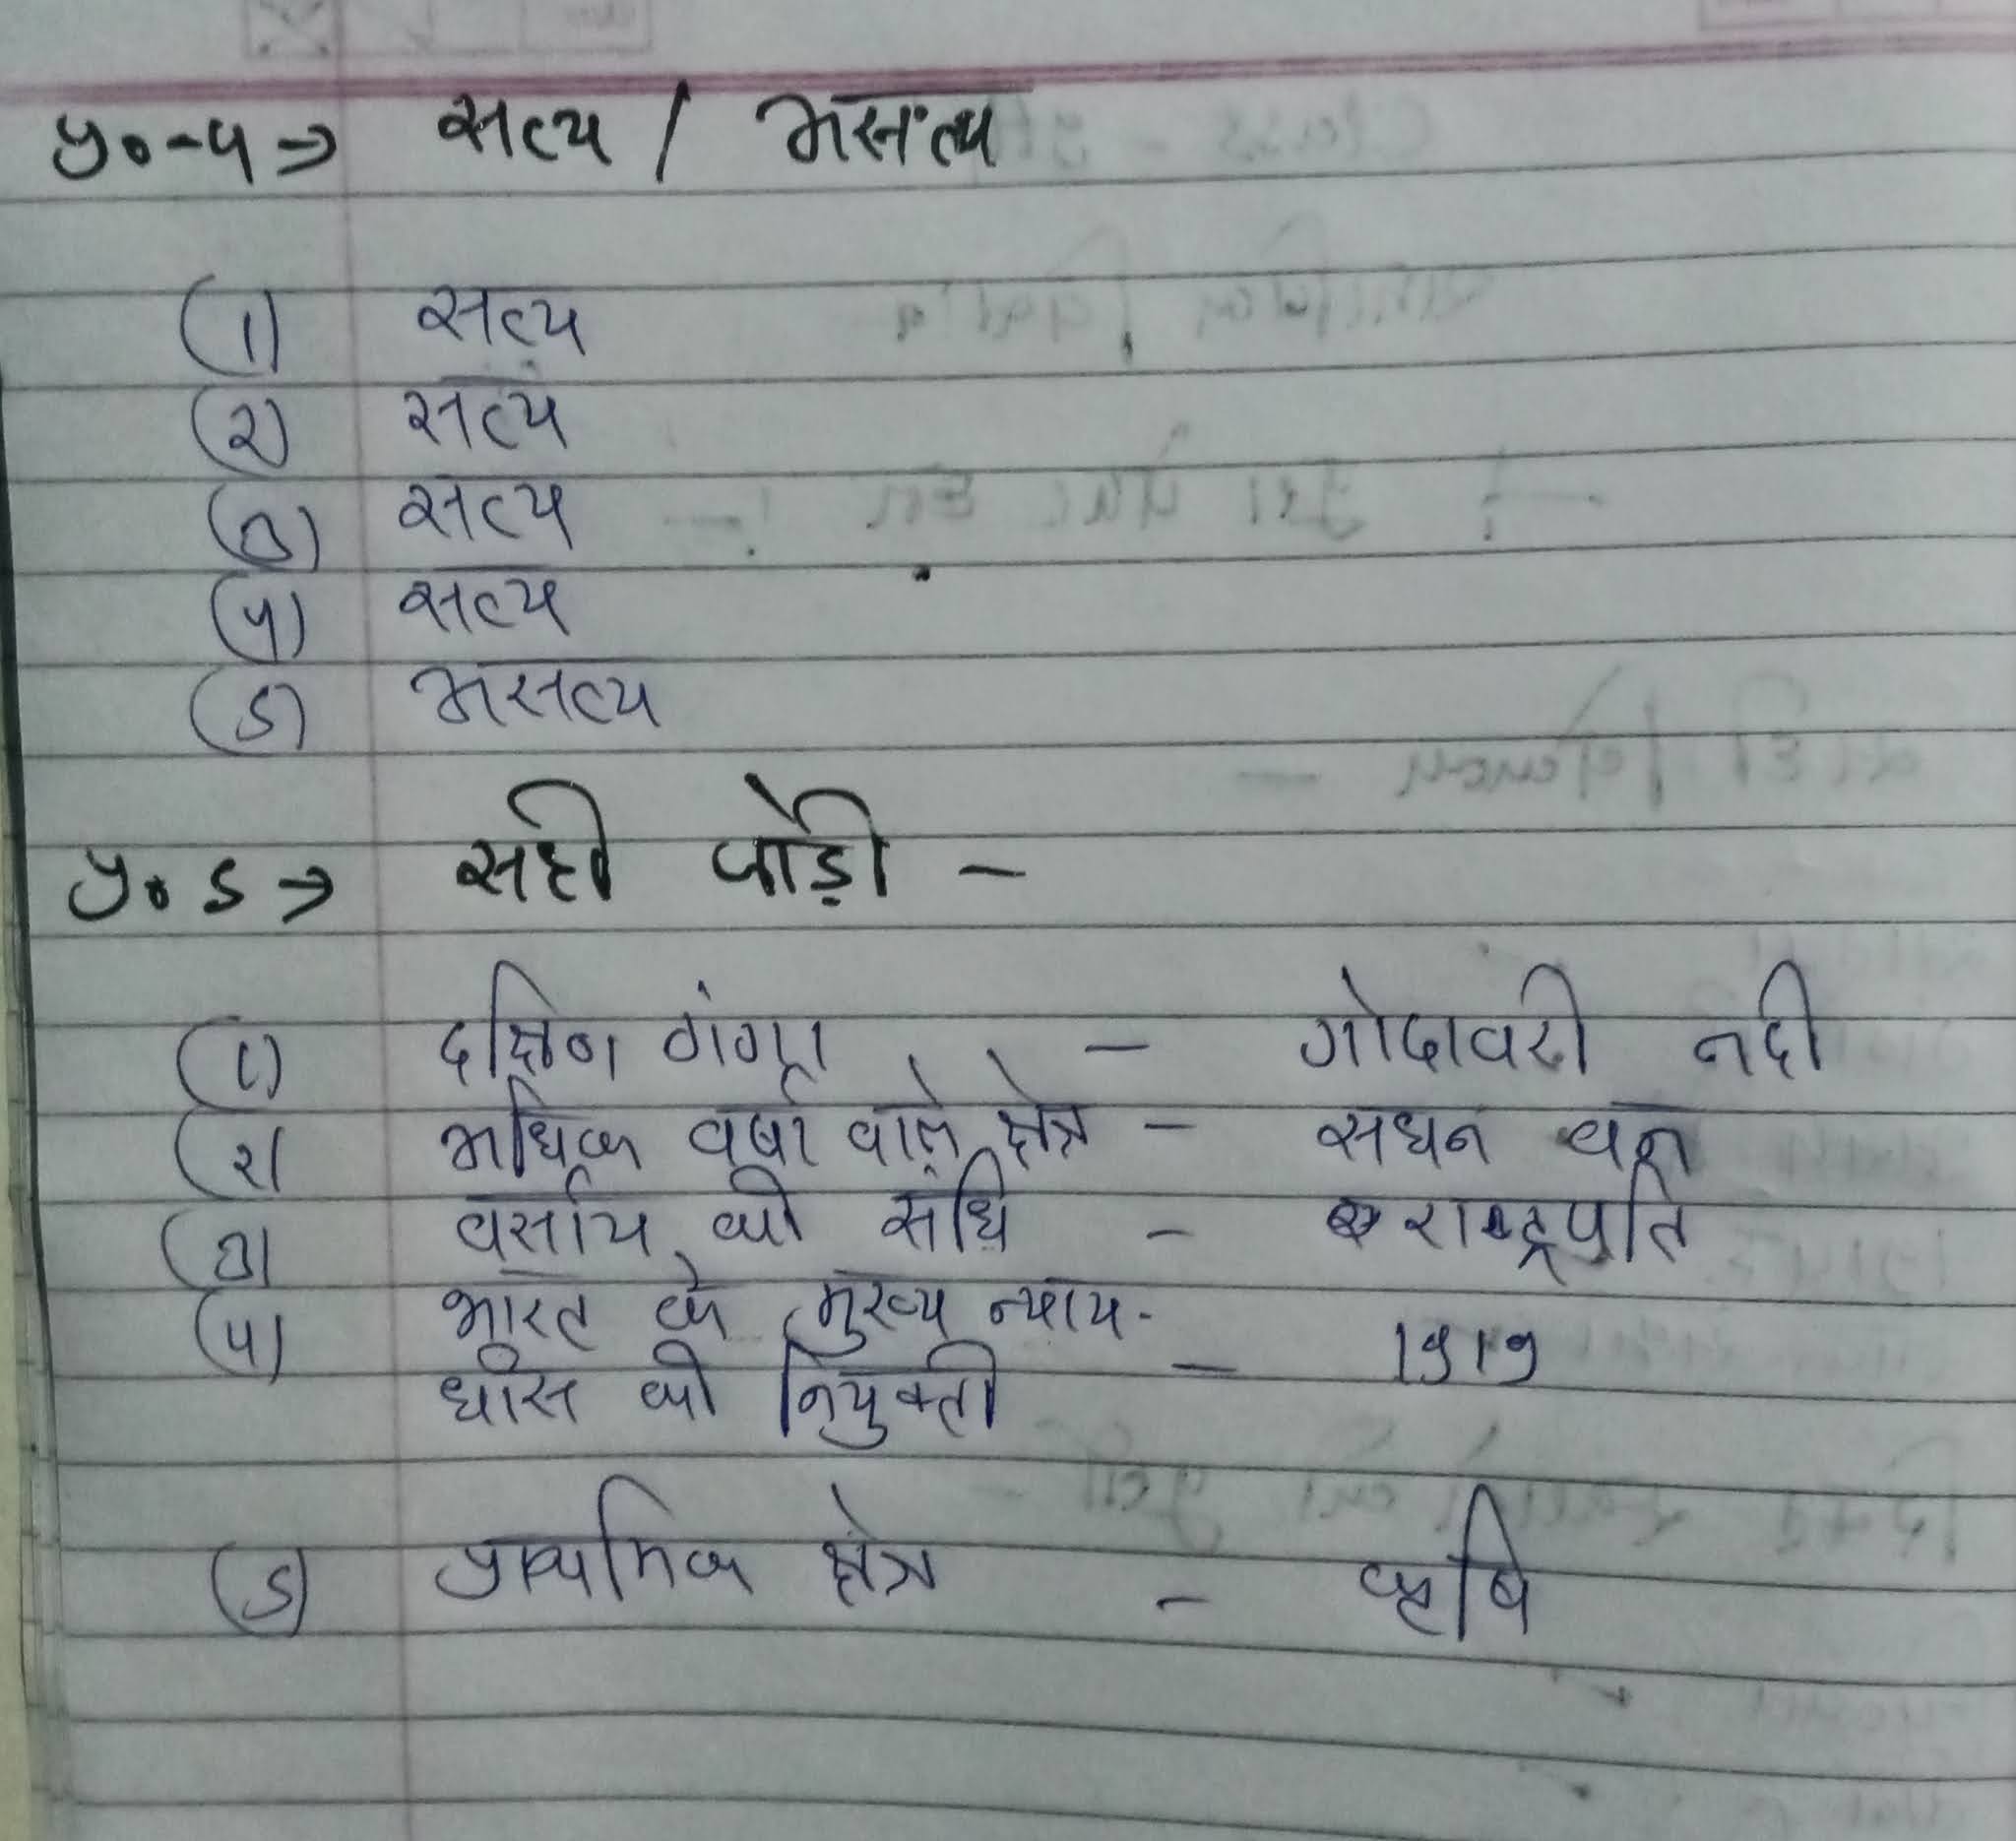 प्र०-4 ⇒ सत्य / असत्य
(1) सत्य
(2) सत्य
(3) सत्य
(4) सत्य
(5) असत्य
प्र०5 ⇒ सही जोड़ी -
(1) दक्षिण गंगा - गोदावरी नदी
(2) अधिक वर्षा वाले क्षेत्र - सधन वन
(3) वर्साय की संधि - राष्ट्रपति
(4) भारत के मुख्य न्याय-
धीस की नियुक्ती - 1919
(5) प्राथमिक क्षेत्र - कृषि